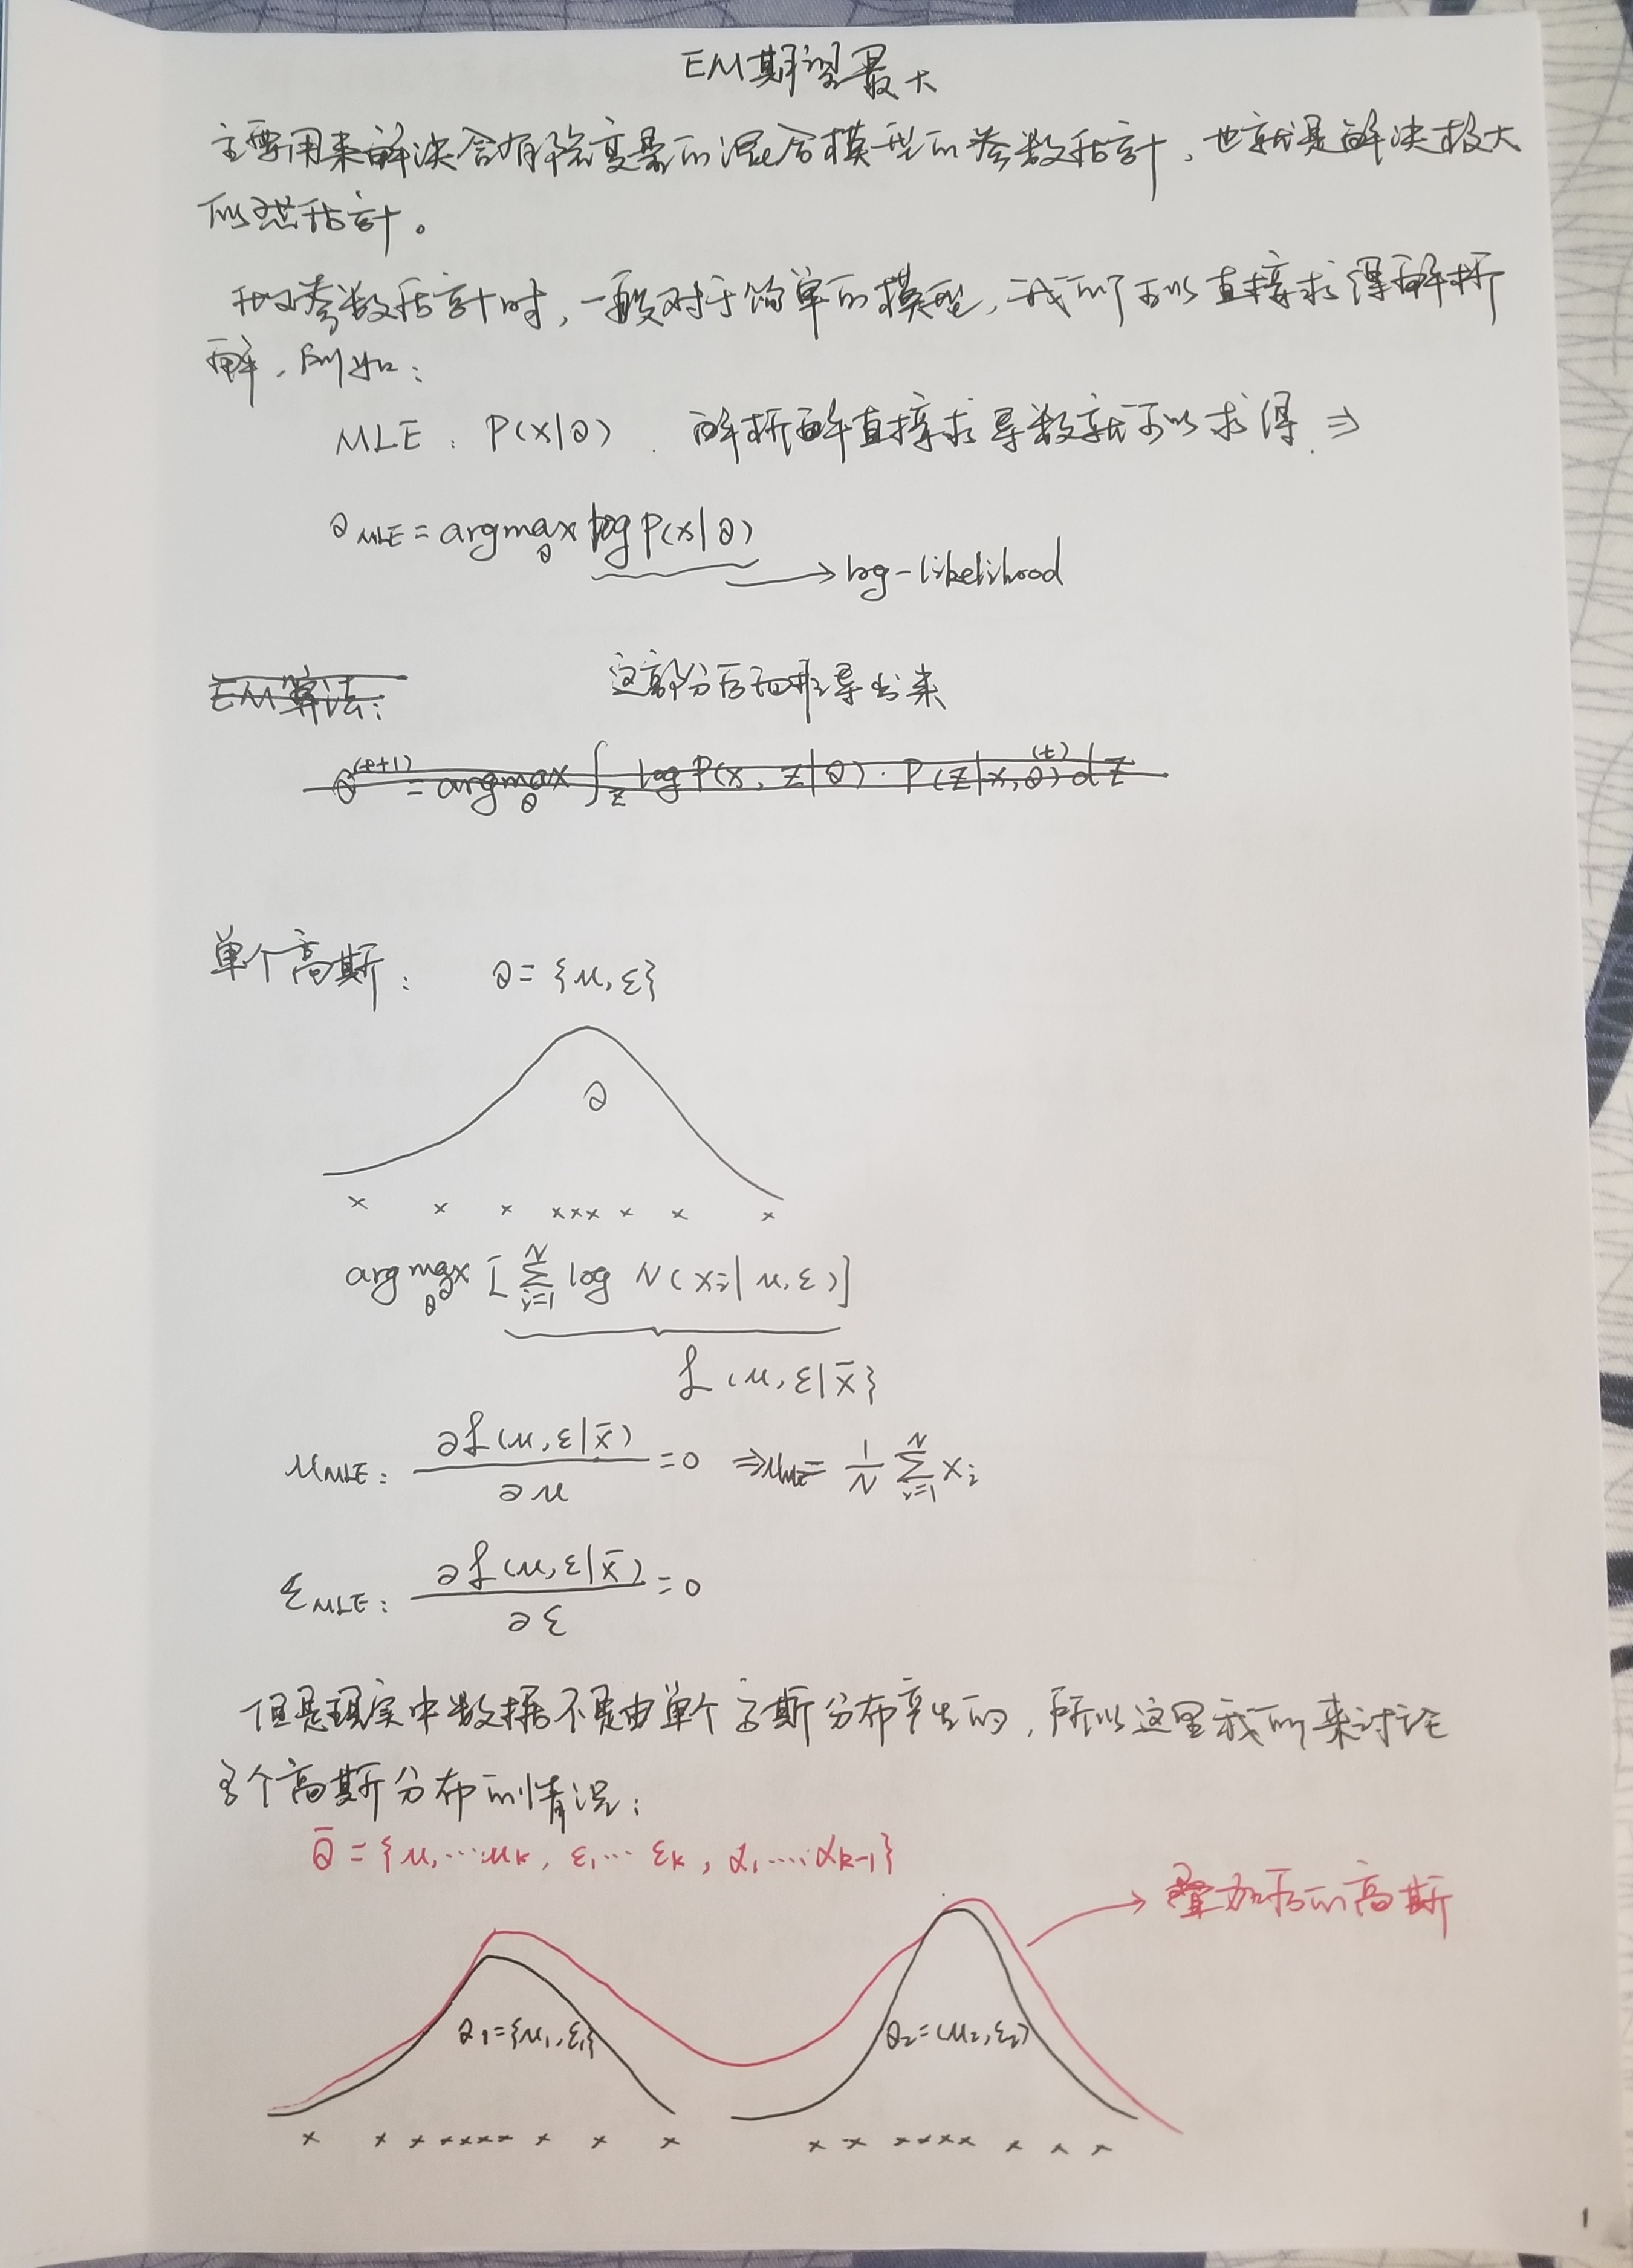 EM期望最大
主要用来解决含有隐变量的混合模型的参数估计，也就是解决极大
似然估计。
参数估计时，一般对于简单的模型，我们可以直接求得解析
解，例如：
MLE：P(x|θ)．解析解直接求导数就可以求得．⇒
θMLE = argmaxθ log P(x|θ)
→ log-likelihood
EM算法：
这部分后面推导出来
θ^(t+1) = argmaxθ ∫z log P(x, z|θ)·P(z|x,θ^(t))dz
单个高斯： θ = {μ, ε}
θ
argmaxθ [∑_{i=1}^N log N(xi|μ,ε)]
L(μ,ε|x̄)
μMLE: ∂L(μ,ε|x̄)/∂μ = 0 ⇒ μMLE = 1/N ∑_{i=1}^N xi
εMLE: ∂L(μ,ε|x̄)/∂ε = 0
但是现实中数据不是由单个高斯分布产生的，所以这里我们来讨论
多个高斯分布的情况：
θ̄ = {μ1…μk, ε1…εk, α1…αk-1}
叠加后的高斯
θ1={μ1,ε1}
θ2=(μ2,ε2)
1